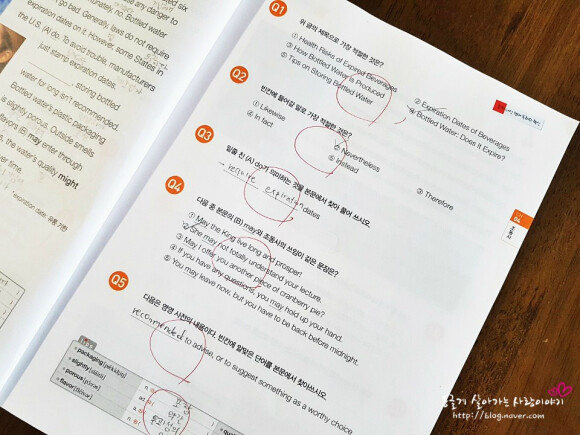 use any danger to
tunately, no. Bottled water
go bad. Generally, laws do not require
expiration dates on it. However, some States in
the U.S. (A) do. To avoid trouble, manufacturers
just stamp expiration dates.
storing bottled
water for long isn't recommended.
Bottled water's plastic packaging
slightly porous. Outside smells
flavors (B) may enter through
the water's quality might
over time.
expiration date 유통 기한
Q1
위 글의 제목으로 가장 적절한 것은?
① Health Risks of Expired Beverages
② Expiration Dates of Beverages
③ How Bottled Water Is Produced
④ Bottled Water: Does It Expire?
⑤ Tips on Storing Bottled Water
Q2
빈칸에 들어갈 말로 가장 적절한 것은?
① Likewise
② Nevertheless
③ Therefore
④ In fact
⑤ Instead
Q3
밑줄 친 (A) do가 의미하는 것을 본문에서 찾아 풀어 쓰시오.
→ require expiration dates
Q4
다음 중 본문의 (B) may와 조동사의 쓰임이 같은 문장은?
① May the King live long and prosper!
② She may not totally understand your lecture.
③ May I offer you another piece of cranberry pie?
④ If you have any questions, you may hold up your hand.
⑤ You may leave now, but you have to be back before midnight.
Q5
다음은 영영 사전의 내용이다. 빈칸에 알맞은 단어를 본문에서 찾아쓰시오.
recommended to advise, or to suggest something as a worthy choice
packaging
slightly
porous
flavor
포장
약간
04
조동사
즐겁게 살아가는 사랑이야기
http://blog.naver.com/